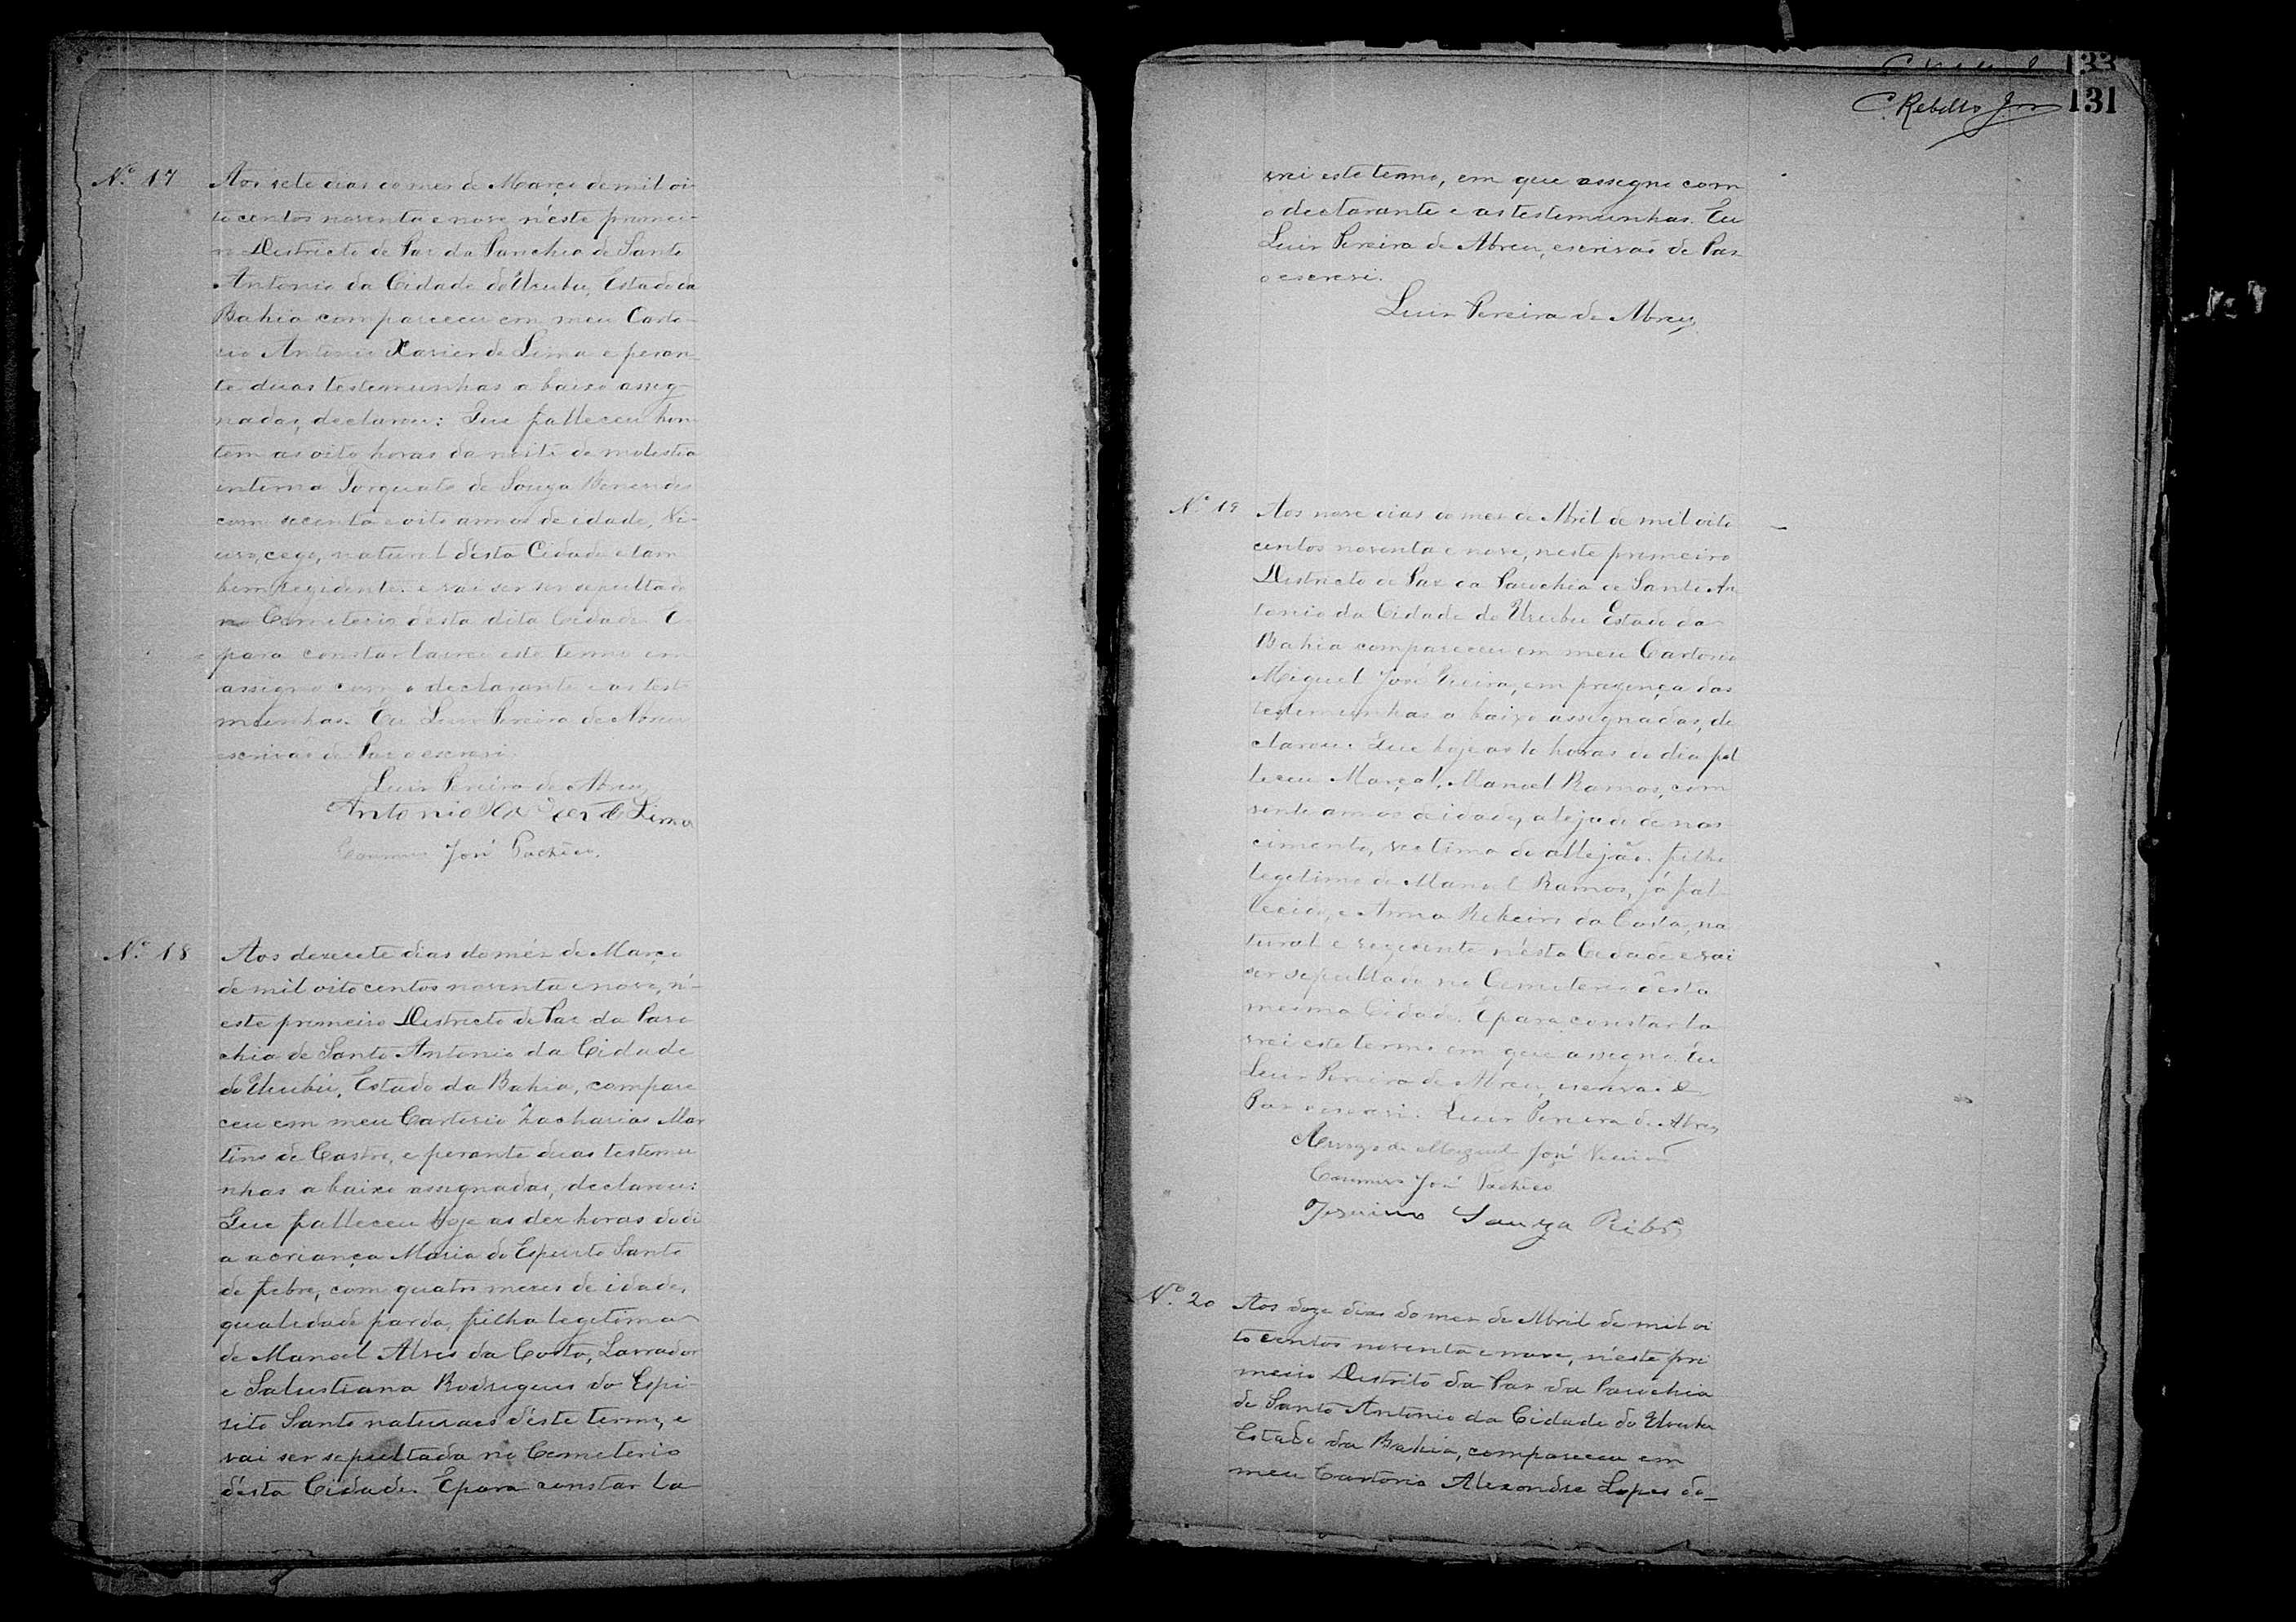 Nº 17
Aos sete dias do mes de Março de mil oi-
to centos noventa e nove n'este primei-
ro Districto de Paz da Parochia de Santo
Antonio da Cidade do Urubu, Estado da
Bahia compareceu em meu Carto-
rio Antonio Xavier de Lima e peran-
te duas testemunhas a baixo assig-
nadas, declarou: Que falleceu hon-
tem as oito horas da noite de molestia
interna Torquato de Souza
com secenta e oito annos de idade, Vi-
uvo, cego, natural désta Cidade e tam
bem rezidente. e vai ser ser sepultado
no Cemiterio désta dita Cidade. E
para constar lavrei este termo em
assigno com o declarante e as teste
munhas. Eu Luis Pereira de Abreu
escrivão de Paz o escrevi
Luis Pereira de Abreu
Antonio Xavier de Lima
José Pacheco.
Nº 18
Aos dezecete dias do mês de Março
de mil oito centos noventa e nove, n'-
este primeiro Districto de Paz da Paro
chia de Santo Antonio da Cidade
do Urubú, Estado da Bahia, compare
ceu em meu Cartorio Zacharias Mar
tins de Castro, e perante duas testemu
nhas a baixo assignadas, declarou:
Que falleceu hoje as dez horas do di
a a criança Maria do Espirito Santo
de febre, com quatro mezes de idade,
qualidade parda, filha legitima
de Manoel Alves da Costa, Lavrador
e Salustiana Rodrigues do Espi-
rito Santo naturaes déste termo, e
vai ser sepultada no Cemeterio
désta Cidade. E para constar la
133
C. Rebello Jor 131
vrei este termo, em que assigno com
o declarante e as testemunhas. Eu
Luis Pereira de Abreu, escrivão de Paz
o escrevi.
Luis Pereira de Abreu
Nº 19
Aos nove dias do mes de Abril de mil oito
centos noventa e nove, neste primeiro
Districto de Paz da Parochia de Santo An
tonio da Cidade do Urubu Estado da
Bahia compareceu em meu Cartorio
Miguel José Vieira, em prezença das
testemunhas a baixo assignadas, de
clarou: Que hoje as 10 horas do dia fal
leceu Marçal, Manoel Ramos, com
vinte annos de idade, alejado de nas
cimento, victima do allejão, filho
legitimo de Manoel Ramos, já fal
lecido, e Anna Ribeiro da Costa, na
tural e rezidente n'ésta Cidade e vai
ser sepultado no Cemeterio désta
mesma Cidade. E para constar la
vrei este termo em que assigno. Eu
Luis Pereira de Abreu, escrivão de
Paz o escrevi. Luis Pereira de Abreu
Arrogo de Miguel José Vieira
José Pacheco
Souza Ribrº
Nº 20
Aos doze dias do mes de Abril de mil oi
to centos noventa e nove, n'éste pri
meiro Distrito da Paz da Parochia
de Santo Antonio da Cidade do Urubu
Estado da Bahia, compareceu em
meu Cartorio Alexandre Lopes da-